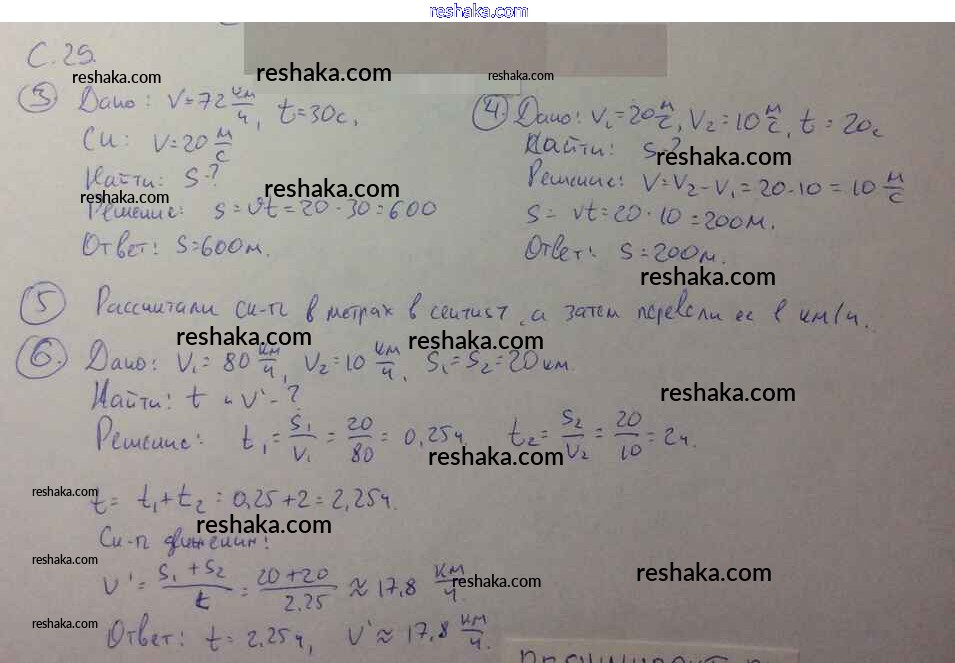 reshaka.com
С. 29.
reshaka.com reshaka.com reshaka.com
③ Дано: V=72 км/ч, t=30с,
СИ: V=20 м/с
Найти: S-?
reshaka.com reshaka.com
Решение: S=Vt=20·30=600
Ответ: S=600м.
④ Дано: V₁=20 м/с, V₂=10 м/с, t=20с
Найти: S-?
reshaka.com
Решение: V=V₂-V₁=20-10=10 м/с
S= Vt=20·10=200м.
Ответ: S=200м.
reshaka.com
⑤ Рассчитали ск-ть в метрах в а затем перевели ее в км/ч.
reshaka.com reshaka.com
⑥ Дано: V₁=80 км/ч, V₂=10 км/ч, S₁=S₂=20км.
Найти: t и V'-?
reshaka.com
Решение: t₁=S₁/V₁=20/80=0,25ч. t₂=S₂/V₂=20/10=2ч.
reshaka.com
reshaka.com
t= t₁+t₂=0,25+2=2,25ч.
reshaka.com
Ск-ть движения:
reshaka.com
V'=S₁+S₂/t=20+20/2,25≈17,8 км/ч.
reshaka.com reshaka.com
reshaka.com
Ответ: t=2,25ч, V'≈17,8 км/ч.